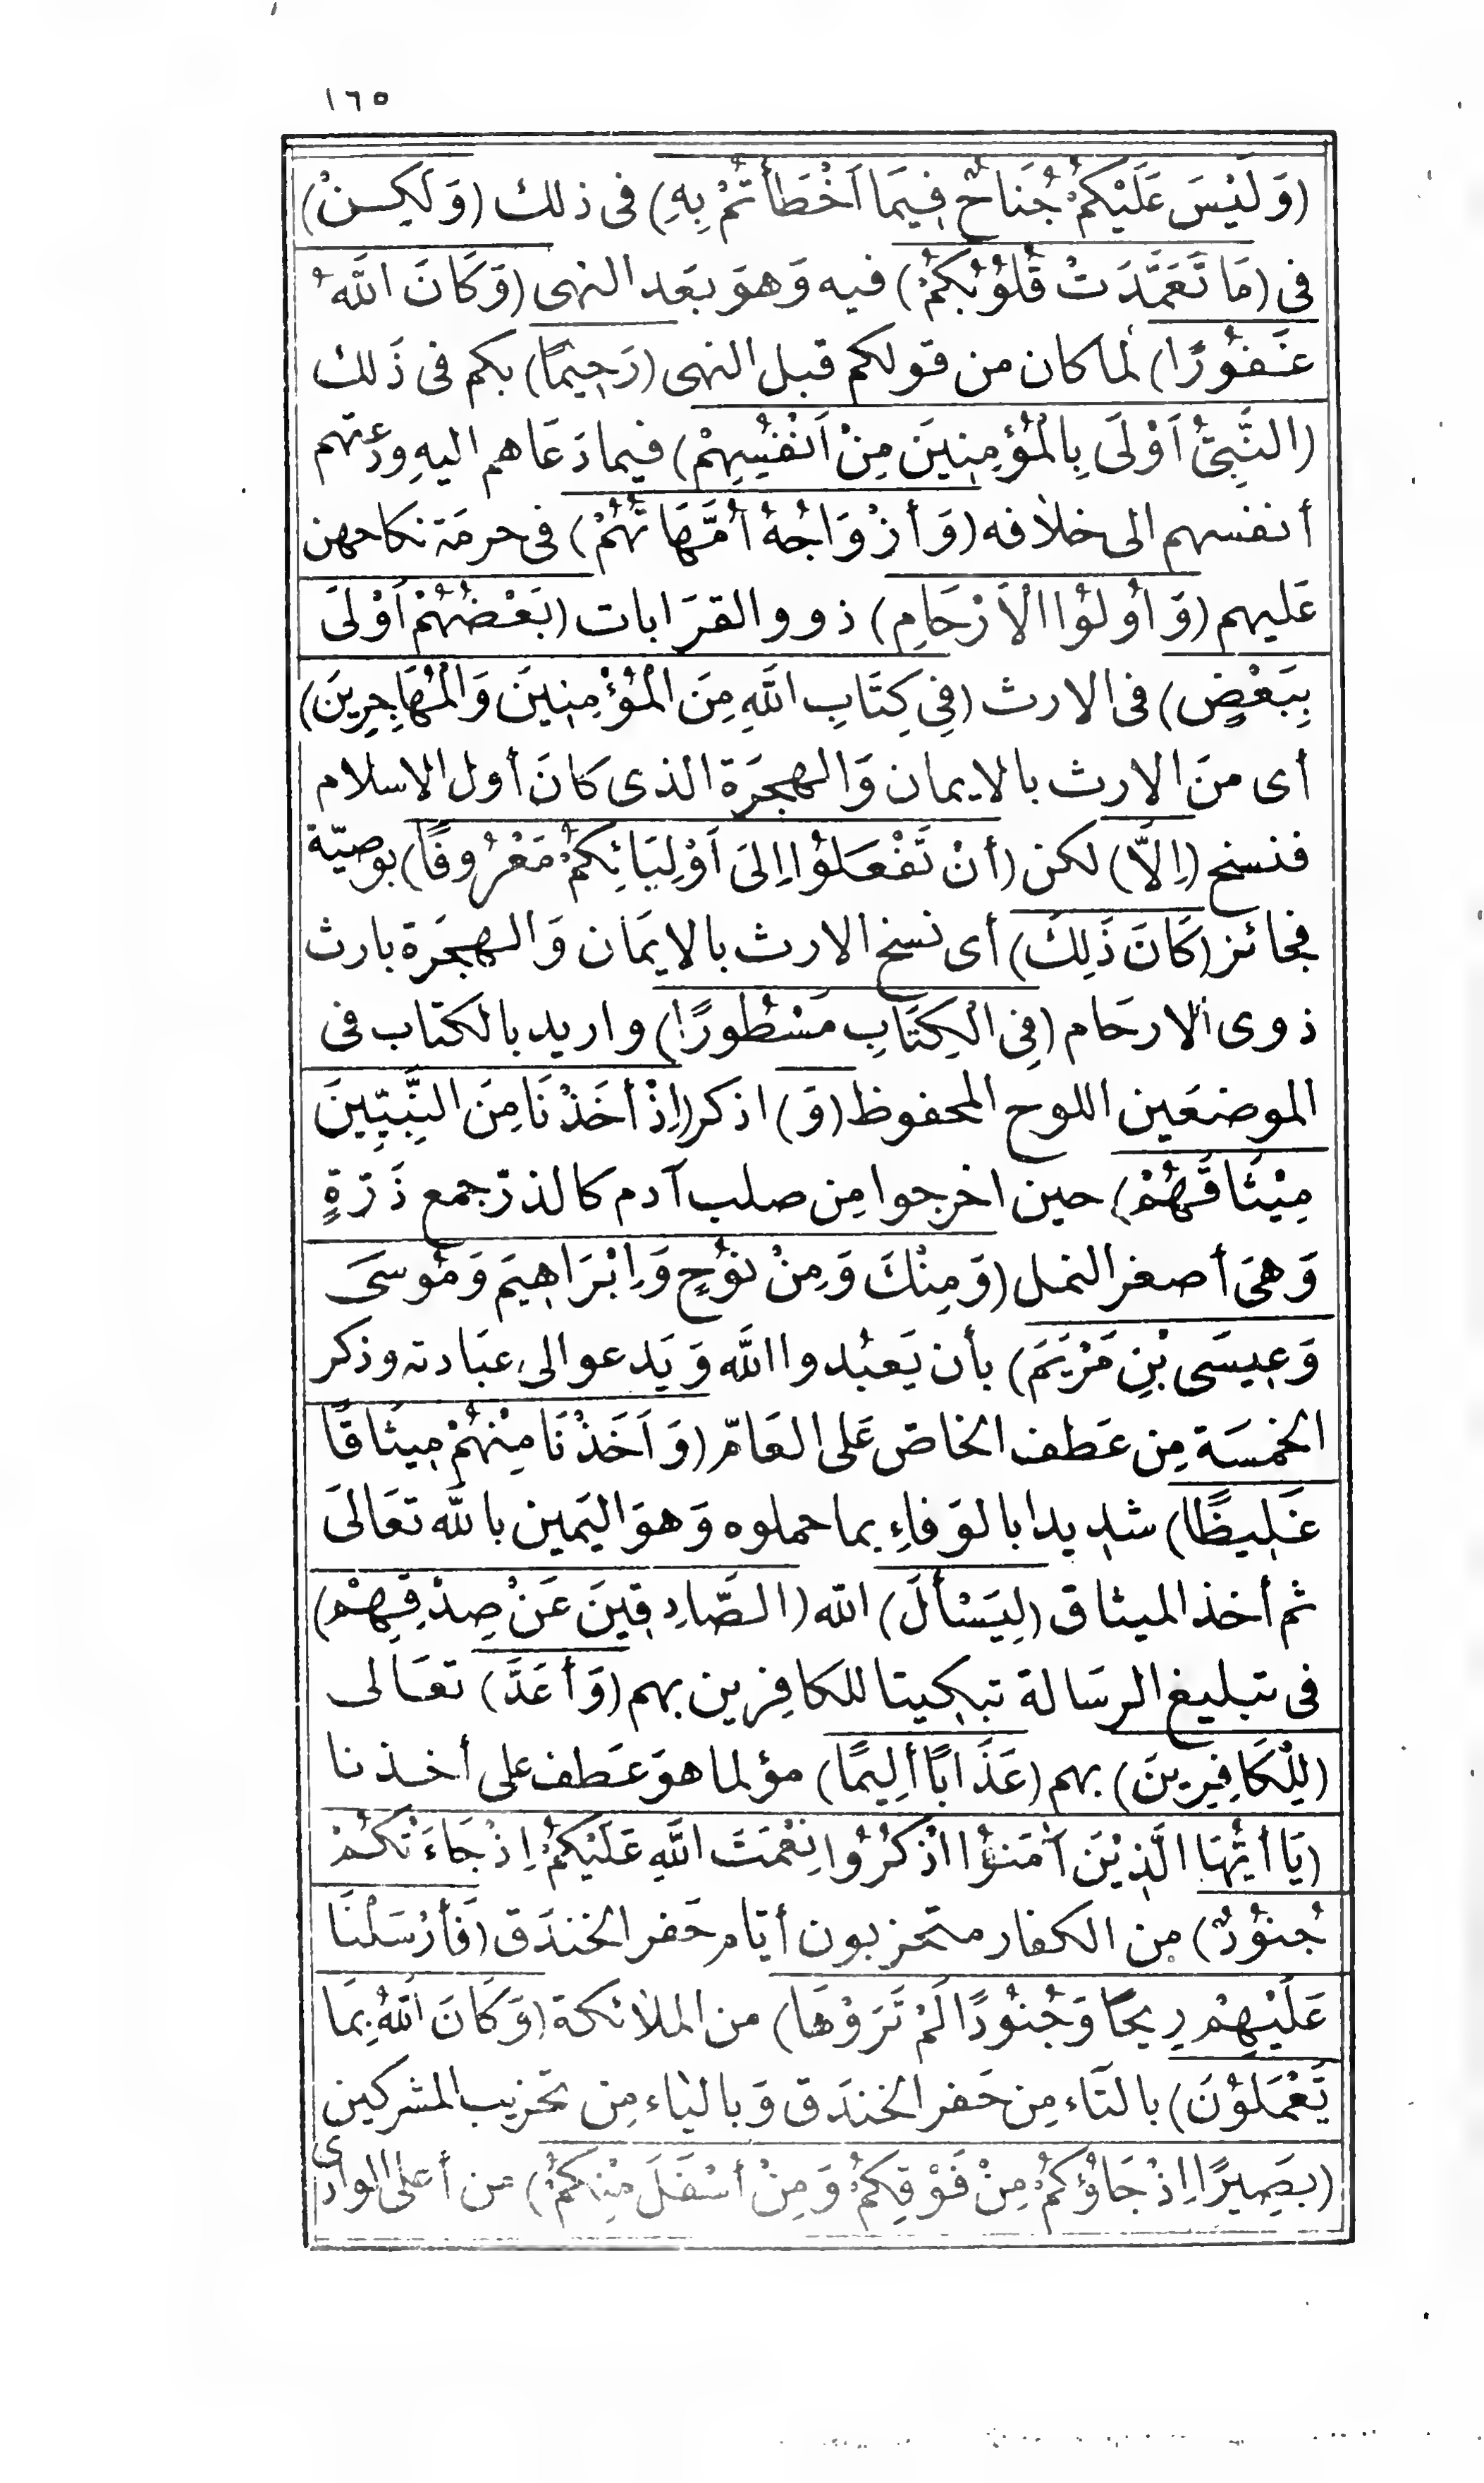 ١٦٥
(وَلَيْسَ عَلَيْكُمْ جُنَاحٌ فِيمَا اَخْطَأتُمْ بِهِ) فى ذلك (وَلَكِنْ)
فى (مَا تَعَمَّدَتْ قُلُوْبُكُمْ) فيه وَهوَ بعَد النهى (وَكَانَ اللَّهُ
غَفُوْرًا) لما كان من قولكم قبل النهى (رَحِيْمًا) بكم فى ذَلك
(النَّبِىُّ اَوْلَى بِالْمُؤمِنِينَ مِنْ اَنْفُسِهِمْ) فيما دَعَاهم اليهِ ودعتهم
أنفسهم الى خلافه (وَأزْوَاجُهُ اُمَّهَاتُهُمْ) فى حرمَة نكاحهن
عَليهم (وَاُولُوْا الْاَرْحَامِ) ذوو القرَابات (بَعْضُهُمْ اَوْلَى
بِبَعْضٍ) فى الارث (فِى كِتَابِ اللَّهِ مِنَ الْمُؤْمِنِينَ وَالْمُهَاجِرِينَ)
أى منَ الارث بالايمان وَالهجرَة الذى كانَ أول الاسلام
فنسخ (اِلَّا) لكن (أنْ تَفْعَلُوْا اِلىَ اَوْلِيَائِكُمْ مَعْرُوفًا) بوصيّة
فجائز (كَانَ ذَلِكَ) أى نسخ الارث بالايمَان وَالهجرَة بارث
ذوى الارحَام (فِى الْكِتَابِ مَسْطُورًا) واريد بالكتاب فى
الموضعَين اللوح المحفوظ (وَ) اذكر (اِذْ أخَذْنَا مِنَ النَّبِيِّينَ
مِيْثَاقَهُمْ) حين اخرجوا مِن صلب آدم كالذرّ جمع ذَرّةٍ
وَهىَ أصغر النمل (وَمِنْكَ وَمِنْ نُوْحٍ وَاِبْرَاهِيمَ وَمُوسىَ
وَعِيسَى بْنِ مَرْيَمَ) بأن يَعبُدوا اللَّه وَيَدعو الى عبَادته وذكر
الخمسَة مِن عَطف الخاصّ عَلى العَامّ (وَاَخَذْنَا مِنْهُمْ مِيثَاقًا
غَلِيظًا) شديدا بالوَفاءِ بما حملوه وَهوَ اليَمين باللَّه تعَالىَ
ثم أخذ الميثاق (لِيَسْألَ) الله (الصَّادِقِينَ عَنْ صِدْقِهِمْ)
فى تبليغ الرسَالة تبكيتا للكافِرين بهم (وَأعَدَّ) تعَالى
(لِلْكَافِرِينَ) بهم (عَذَابًا ألِيمًا) مؤلما هوَ عَطف على أخذنا
(يَا أيُّهَا الَّذِيْنَ آمَنُوْا اذْكُرُوا نِعْمَتَ اللَّهِ عَلَيْكُمْ اِذْ جَاءَتْكُمْ
جُنُوْدٌ) مِن الكفار متحزبون أيّام حَفر الخندَق (فَأرْسَلْنَا
عَلَيْهِمْ رِيحًا وَجُنُوْدًا لَمْ تَرَوْهَا) من الملائكة (وَكَانَ اللَّهُ بِمَا
تَعْمَلُوْنَ) بالتَاء مِن حَفر الخندَق وَبالياء مِن تحزيب المشركين
(بصِيرًا اِذْ جَاؤُكُمْ مِنْ فَوْقِكُمْ وَمِنْ أسْفَلَ مِنْكُمْ) من أعلى الوادى